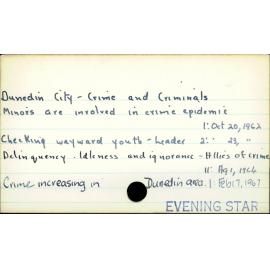 Dunedin City - Crime and Criminals
Minors are involved in crime epidemic
1: Oct 20, 1962
Checking wayward youth - Leader 2: " 23, "
Delinquency. Idleness and ignorance - Allies of crime
11: Ag 1, 1964
Crime increasing in Dunedin area. 1: Feb 17, 1967
EVENING STAR